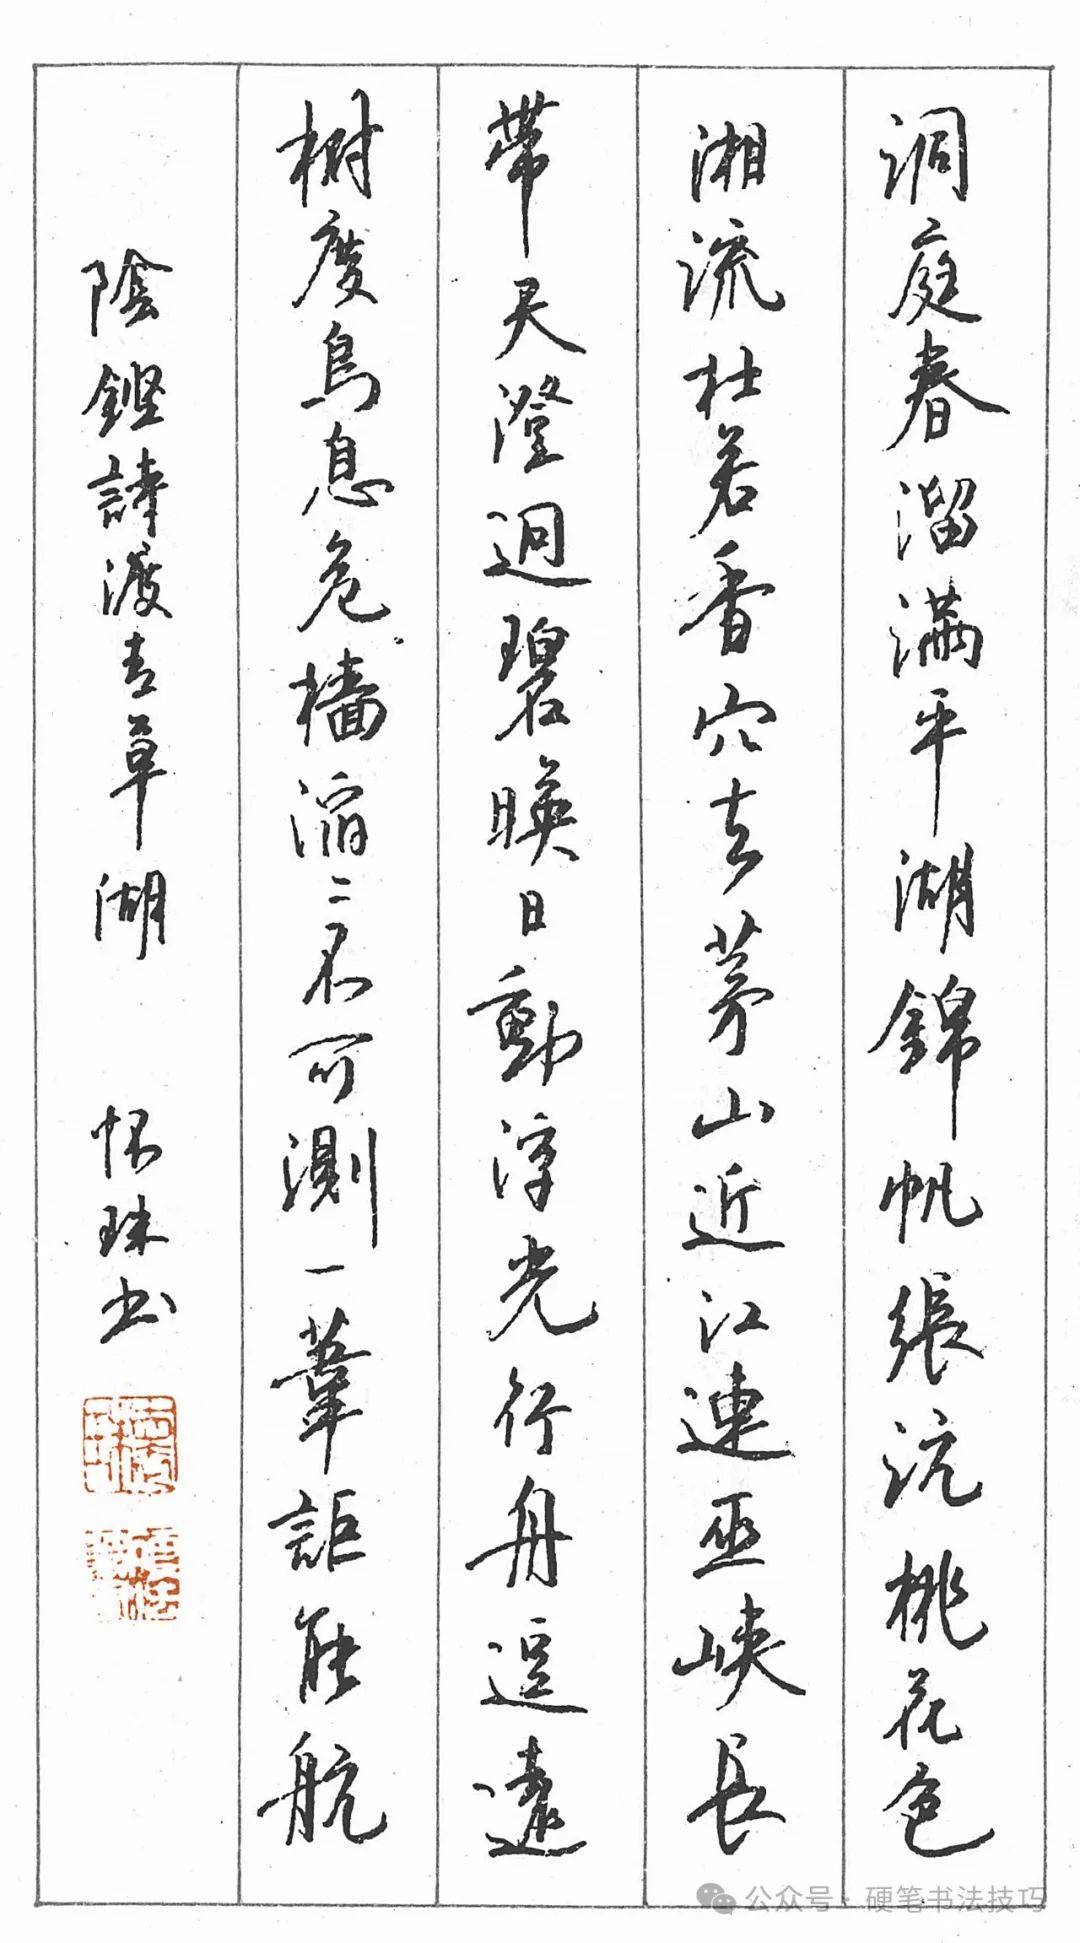 洞庭春溜滿平湖錦帆張沅桃花色
湘流杜若香穴去茅山近江連巫峽長
帶天澄迥碧暎日動浮光行舟逗遠
樹度鳥息危檣滔〻不可測一葦詎能航
陰鏗詩渡青草湖 怀珠书
公众号 · 硬笔书法技巧